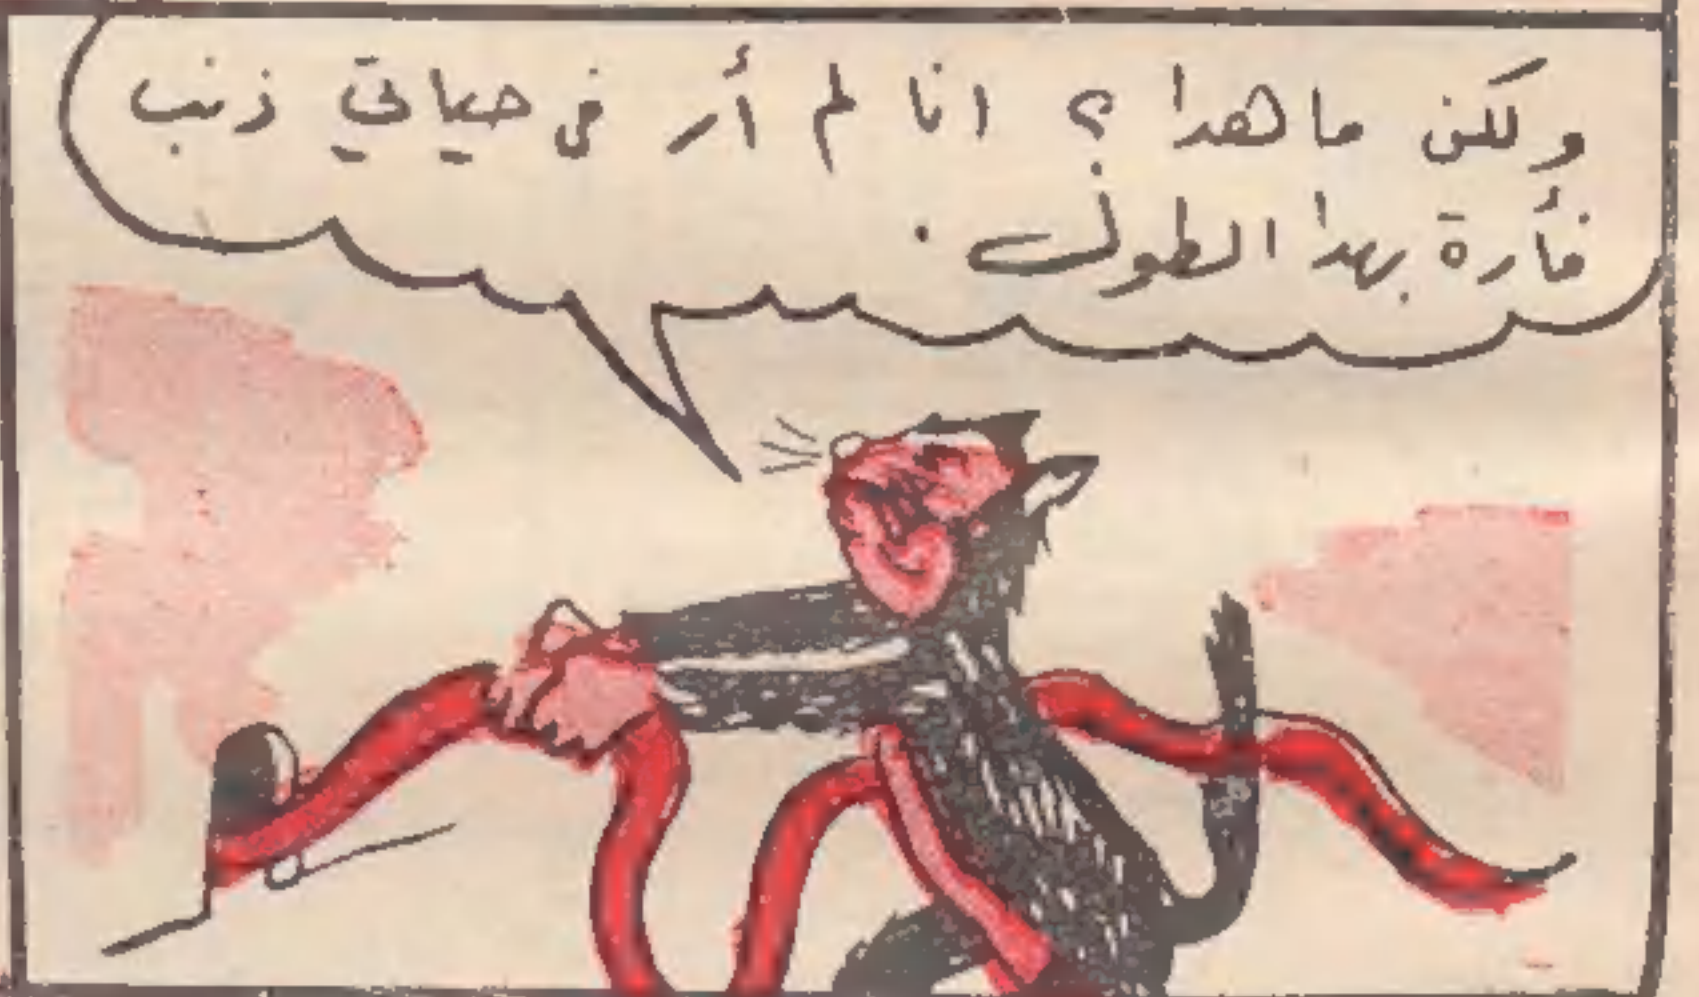 ولكن ما هدا ؟ انا لم أر في حياتي ذنب
فأرة بهذا الطول .